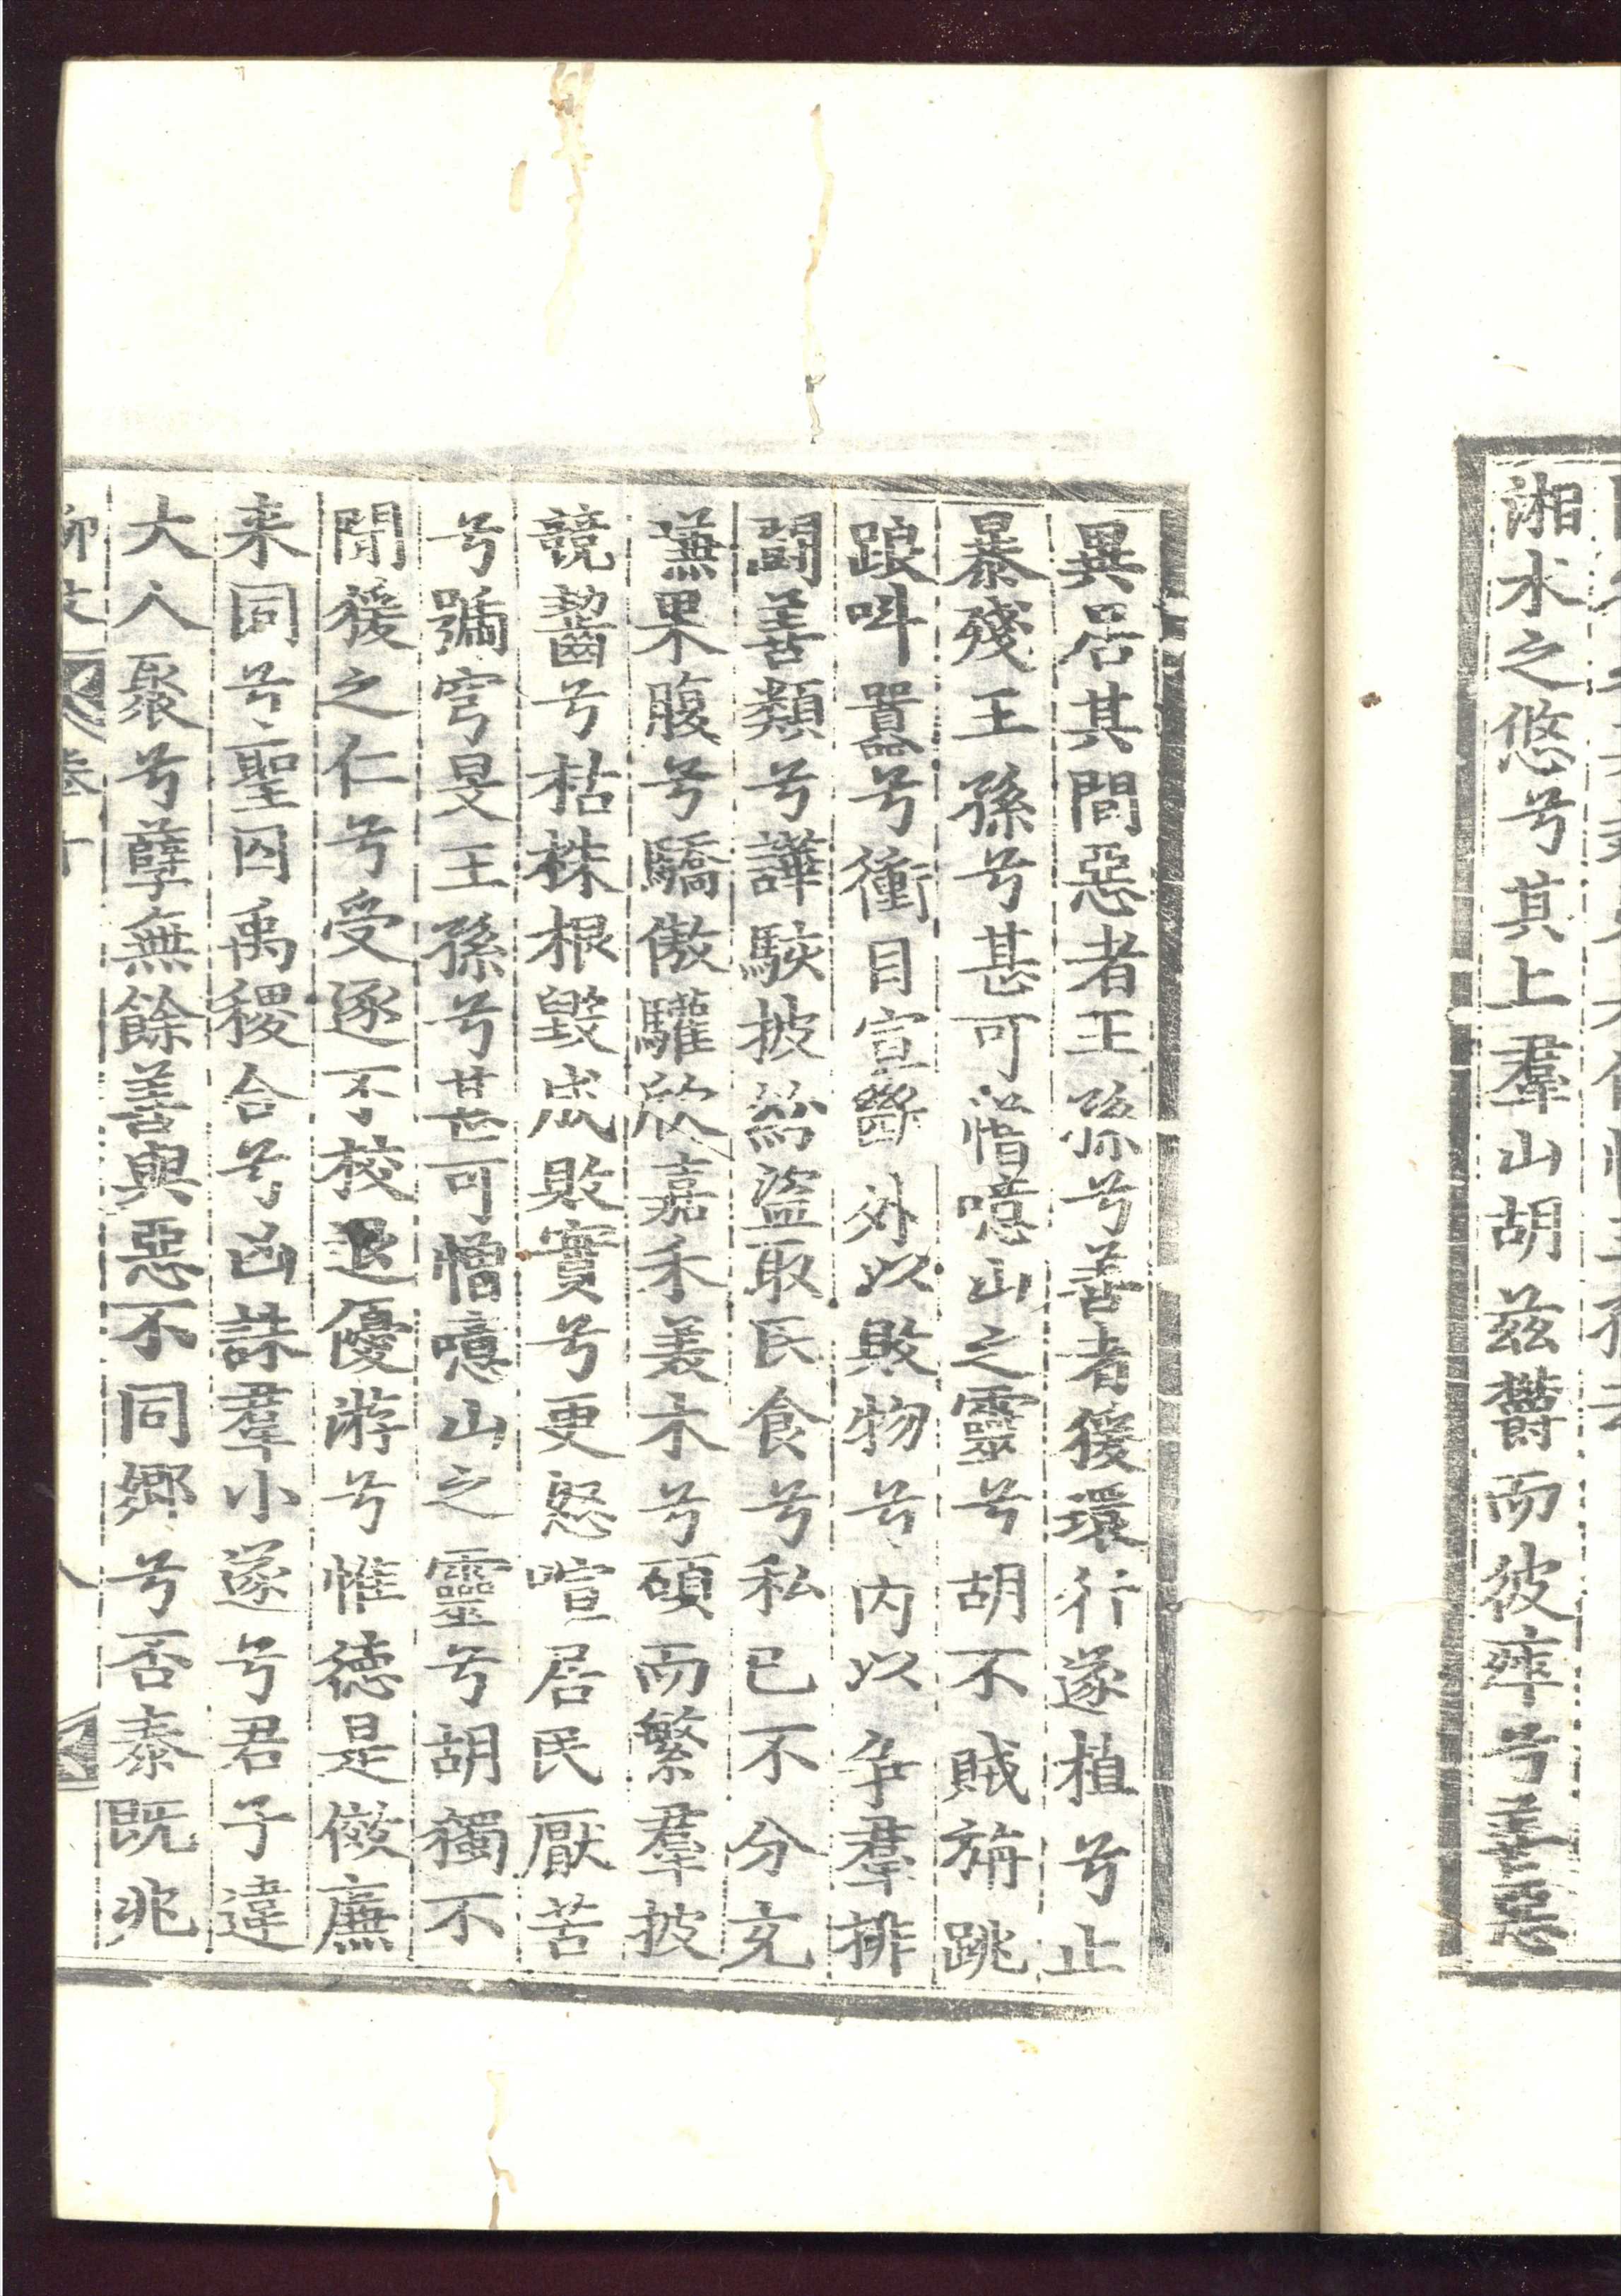 湘水之悠兮其上羣山胡茲欝而彼瘁兮善惡
異居其間惡者王孫兮善者猨環行遂植兮止
暴殘王孫兮甚可憎噫山之靈兮胡不賊旃跳
踉叫囂兮衝目宣齗外以敗物兮内以争羣排
鬪善類兮譁駭披紛盜取民食兮私已不分充
嗛果腹兮驕傲驩欣嘉禾美木兮碩而繁羣披
競齧兮枯株根毀成敗實兮更怒喧居民厭苦
兮號穹旻王孫兮甚可憎噫山之靈兮胡獨不
聞猨之仁兮受逐不挍退優游兮惟德是傚廉
来同兮聖囚禹稷合兮凶誅羣小遂兮君子違
大人聚兮孽無餘善與惡不同鄉兮否泰既兆